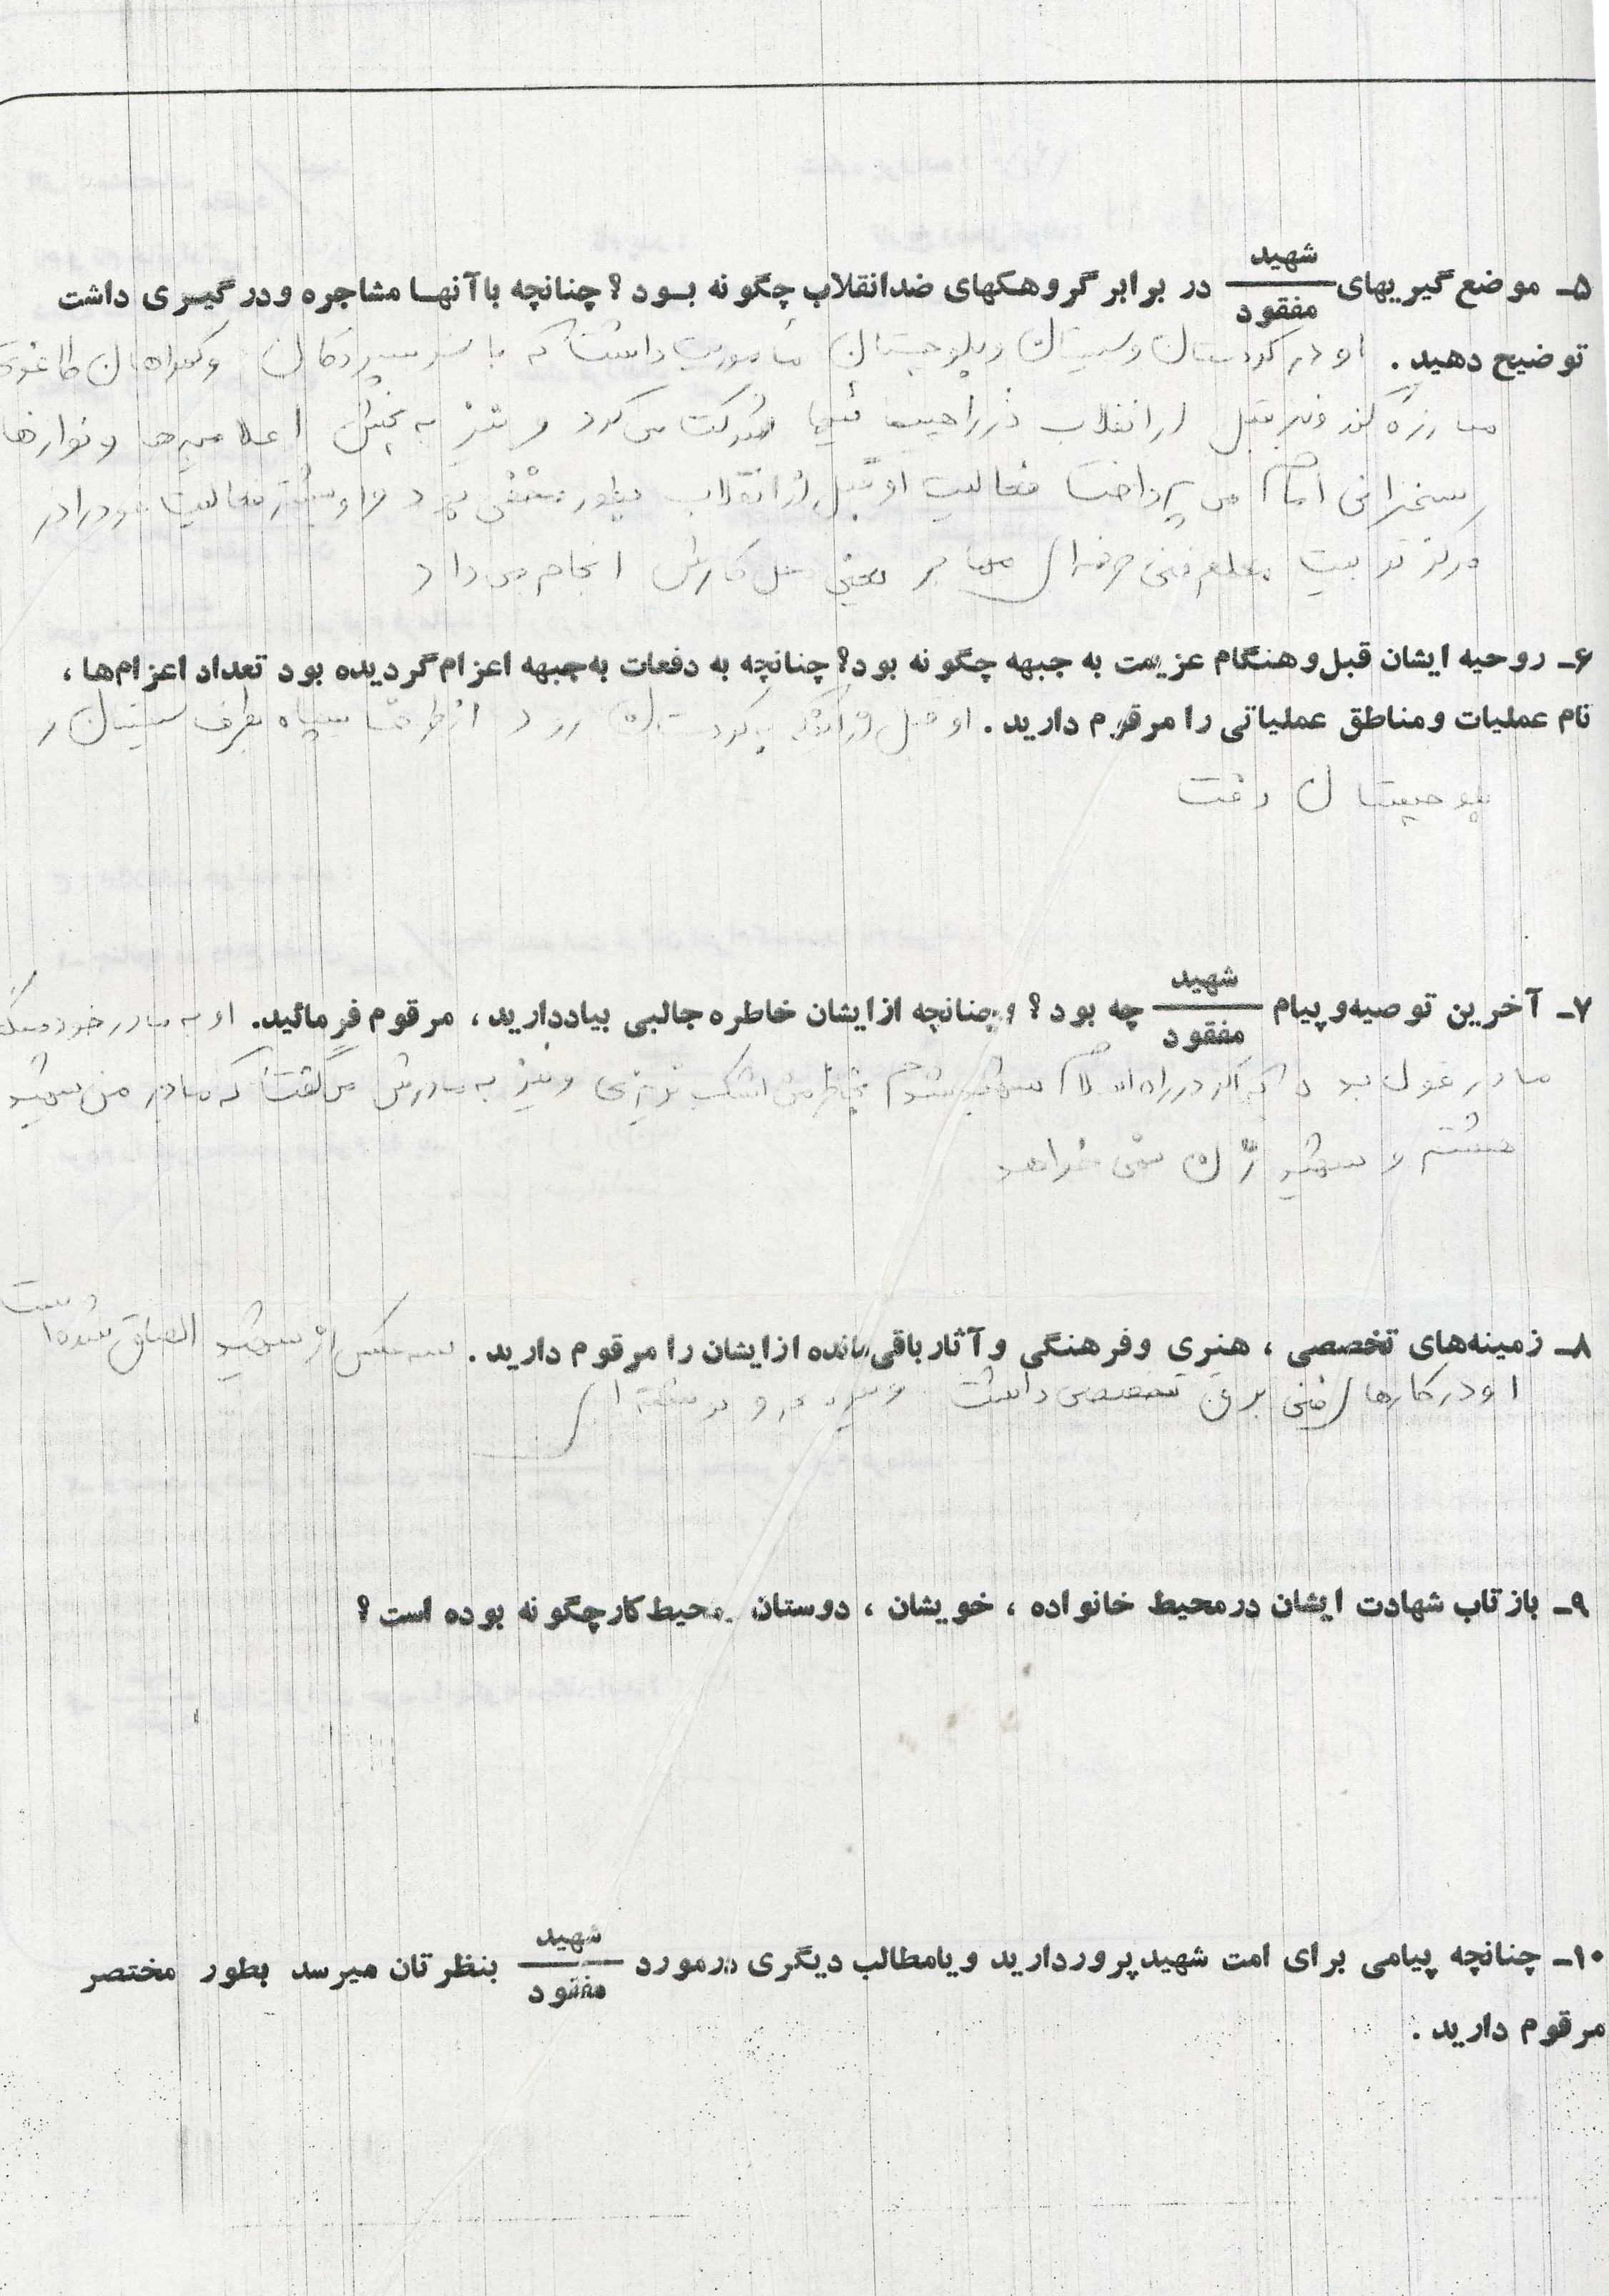 شهید
۵ـ موضع‌گیریهای در برابر گروهکهای ضدانقلاب چگونه بود؟ چنانچه باآنها مشاجره ودرگیری داشت
مفقود
توضیح دهید. او در کردستان و سیستان و بلوچستان مأموریت داشت که با
مبارزه کند و نیز قبل از انقلاب در راهپیمائیها شرکت می‌کرد و نیز به پخش اعلامیه‌ها و نوارها
سخنرانی امام می پرداخت فعالیت او قبل از انقلاب بطور مخفی بود و او بیشتر فعالیت خود را در
مرکز تربیت معلم فنی حرفه‌ای یعنی محل کارش انجام می داد
۶ـ روحیه ایشان قبل وهنگام عزیمت به جبهه چگونه بود؟ چنانچه به دفعات به‌جبهه اعزام گردیده بود تعداد اعزام‌ها،
نام عملیات ومناطق عملیاتی را مرقوم دارید. او قبل از آنکه به کردستان رود از طرف سپاه بطرف سیستان و
بلوچستان رفت
شهید
۷ـ آخرین توصیه‌وپیام چه بود؟ وچنانچه ازایشان خاطره جالبی بیاددارید، مرقوم فرمائید. او به مادر خود
مفقود
مادر قول بده که اگر در راه اسلام شهید شوم بخاطر من اشک نریزی و نیز به مادرش می گفت که مادر من شهید
هستم و شهید زن نمی خواهد
۸ـ زمینه‌های تخصصی، هنری وفرهنگی وآثار باقی‌مانده ازایشان را مرقوم دارید. سه عکس از شهید الصاق شده است
او در کارهای فنی برق تخصصی داشت
۹ـ بازتاب شهادت ایشان درمحیط خانواده، خویشان، دوستان محیط کارچگونه بوده است؟
شهید
۱۰ـ چنانچه پیامی برای امت شهیدپروردارید ویامطالب دیگری درمورد بنظرتان میرسد بطور مختصر
مفقود
مرقوم دارید.